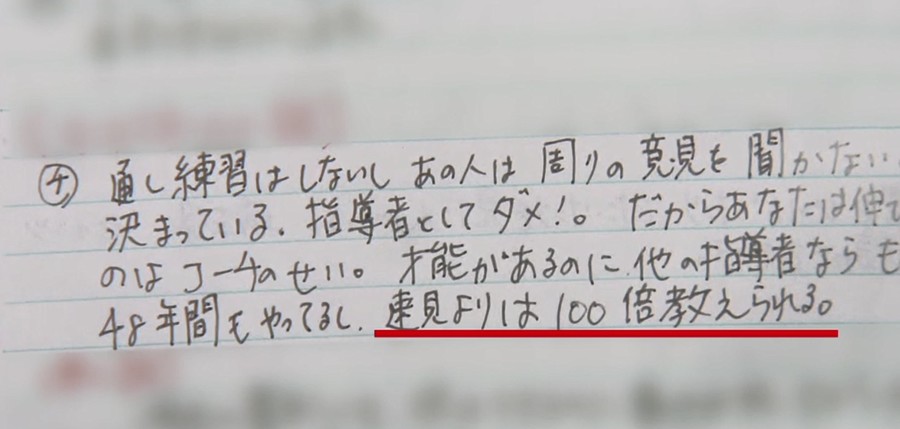 ㋠ 通し練習はしないし あの人は 周りの 意見を 聞かない
決まっている。指導者として ダメ!。 だからあなたは伸び
のは コーチのせい。 才能があるのに 他の指導者なら も
48年間もやってるし、速見よりは 100倍教えられる。